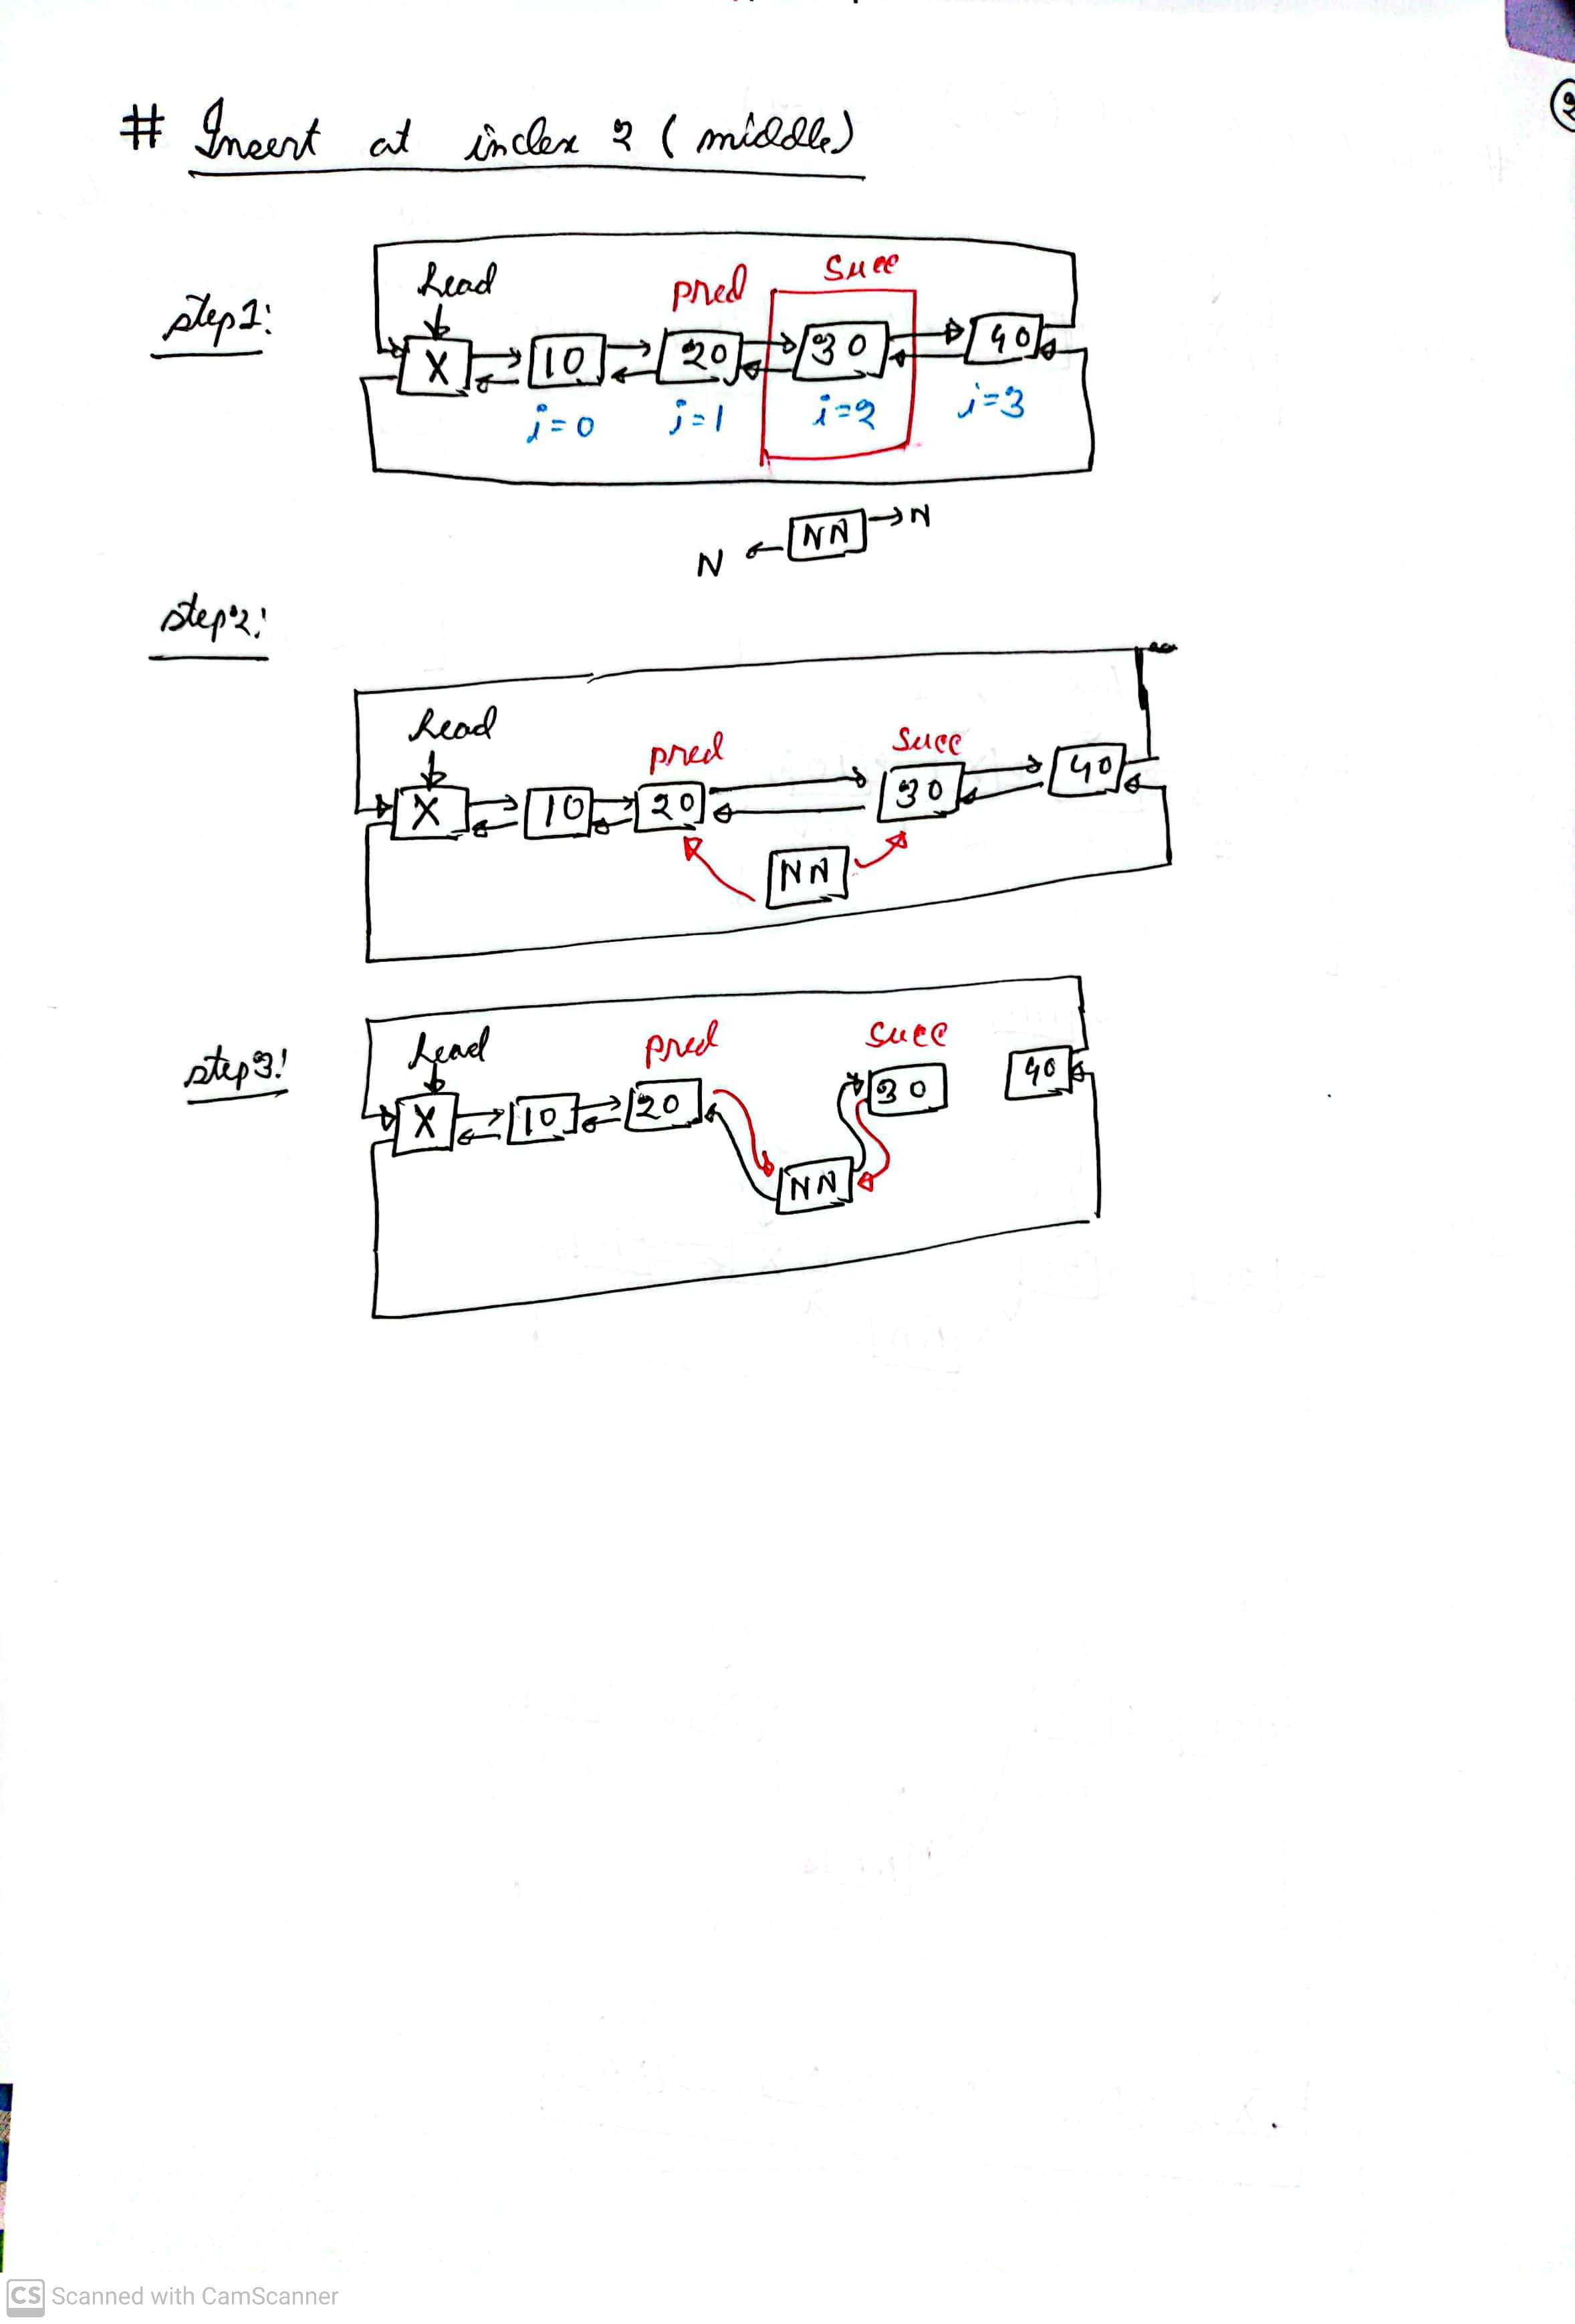 # Insert at index 2 (middle)
2
step1:
head
pred
succ
X 10 20 30 40
i=0 i=1 i=2 i=3
N NN N
step2:
head
pred
succ
X 10 20 30 40
NN
step3:
head
pred
succ
X 10 20 30 40
NN
CS Scanned with CamScanner